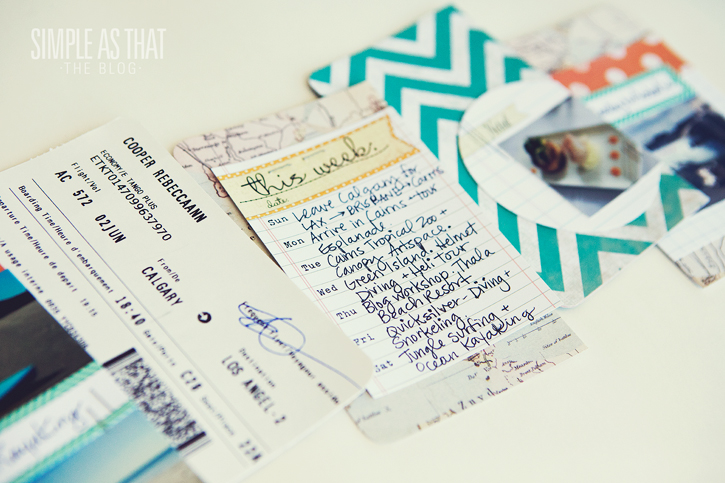 SIMPLE AS THAT
·THE BLOG·
COOPER REBECCAANN
ECONOMY TANGO PLUS
ETKT0147099637970
Flight/Vol
AC 572 02JUN
Boarding Time/Heure d'embarquement
18:40
From/De
CALGARY
Destination
LOS ANGEL-2
Gate/Porte
C18
this week.
date
Sun Leave Calgary for
LAX → BRISBANE → Cairns
Mon Arrive in Cairns → tour
Esplanade
Tue Cairns Tropical Zoo +
Canopy Artspace.
Wed Green Island. Helmet
Diving + Heli Tour
Thu Blog workshop Thala
Beach Resort
Fri Quicksilver - Diving +
Snorkeling
Sat Jungle Surfing +
Ocean Kayaking
Kayaking